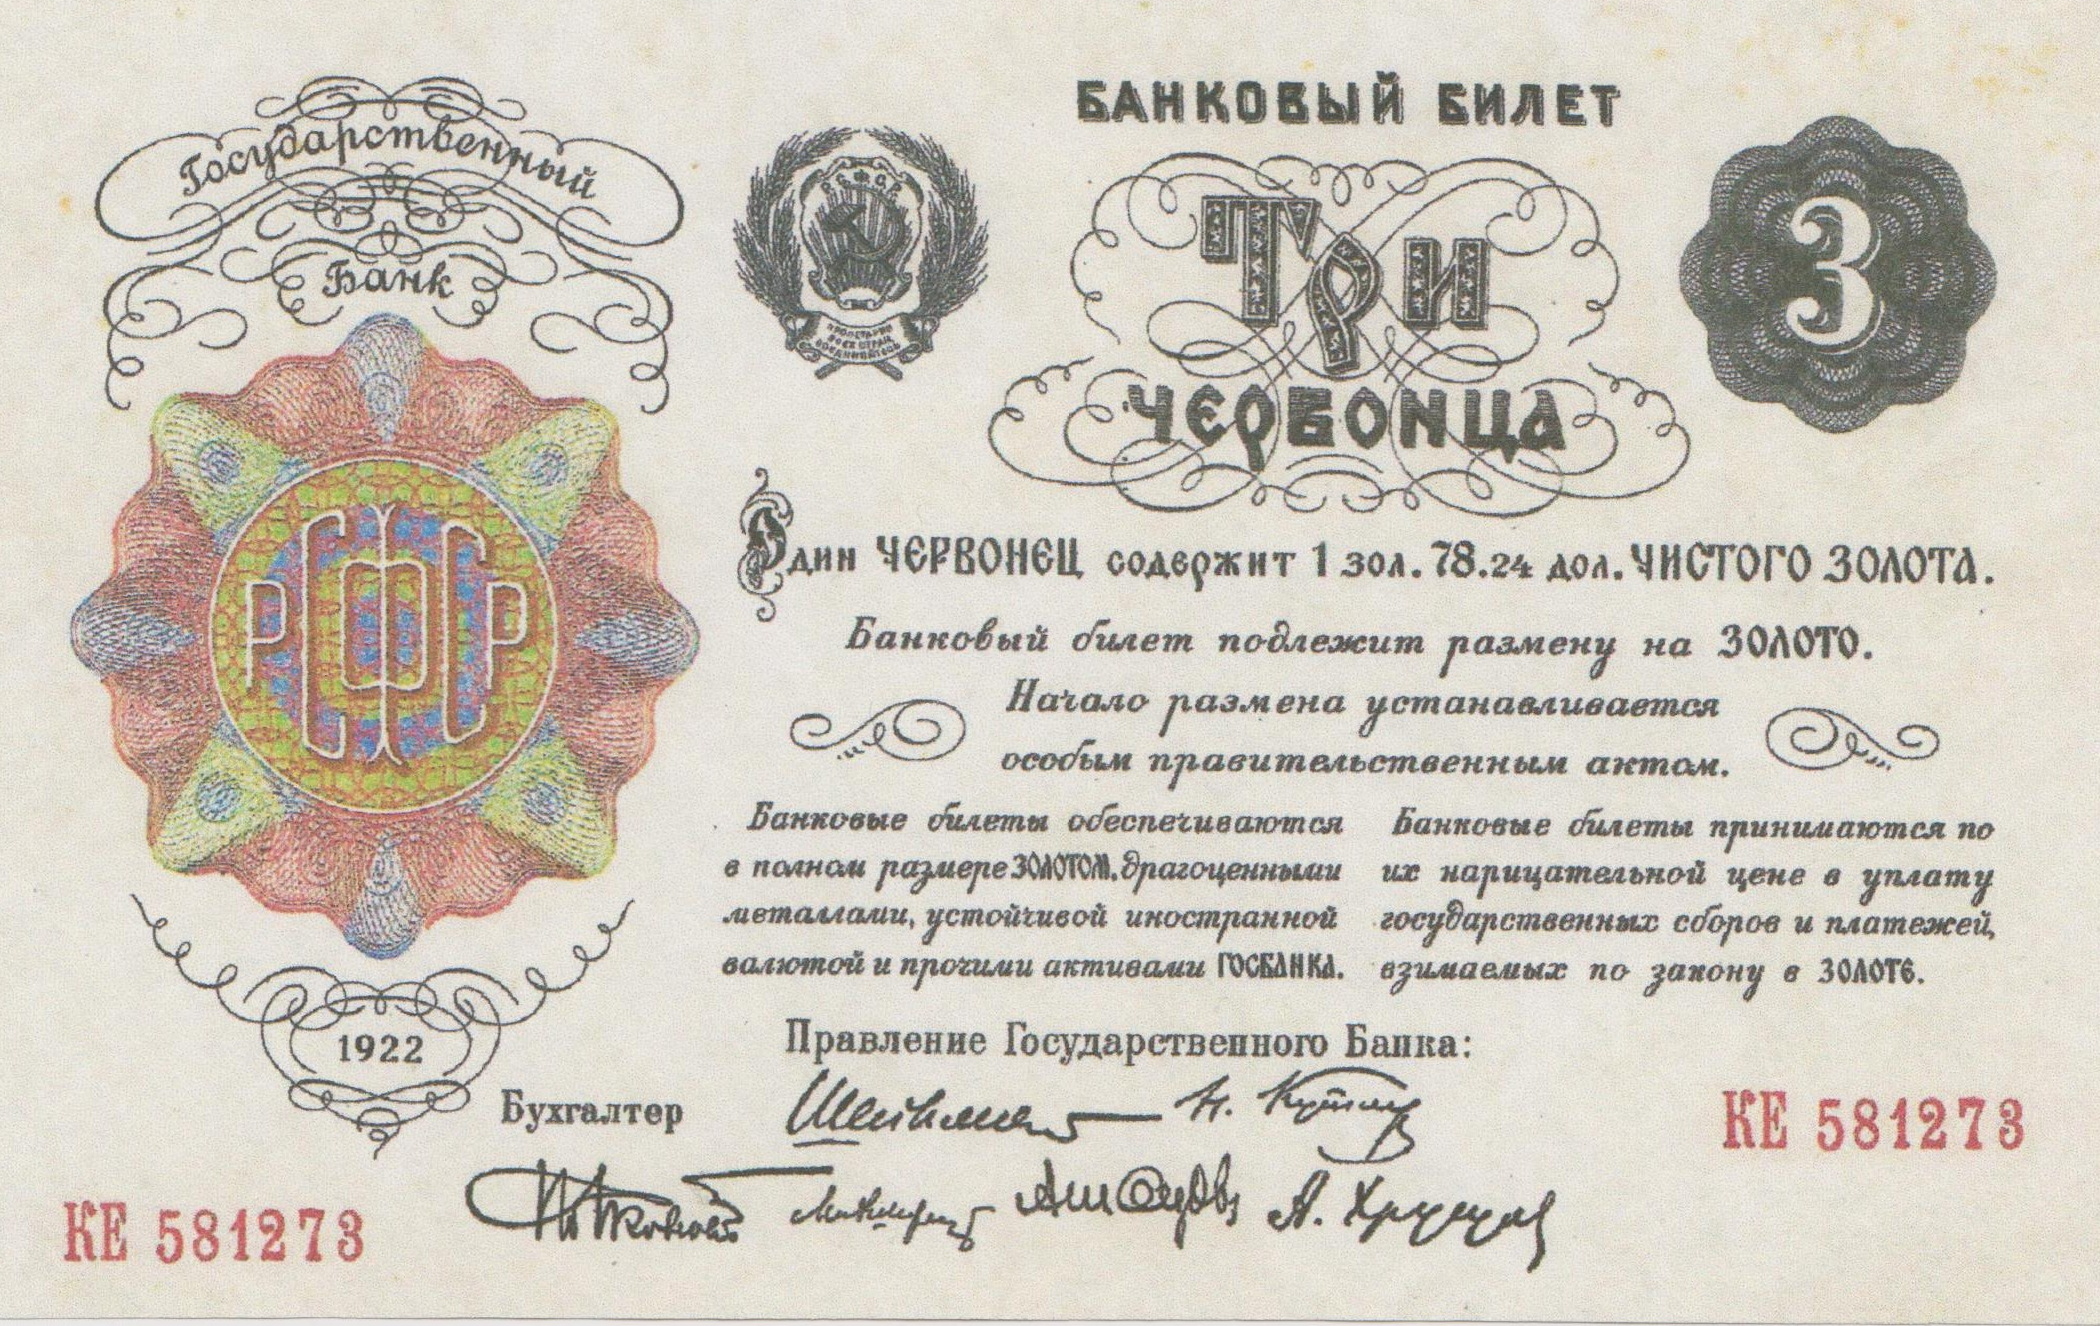 Государственный
Банк
РСФСР
1922
БАНКОВЫЙ БИЛЕТ
Р.С.Ф.С.Р.
ПРОЛЕТАРИИ
ВСЕХ СТРАН
СОЕДИНЯЙТЕСЬ
Три
ЧЕРВОНЦА
3
Один ЧЕРВОНЕЦ содержит 1 зол. 78.24 дол. ЧИСТОГО ЗОЛОТА.
Банковый билет подлежит размену на ЗОЛОТО.
Начало размена устанавливается
особым правительственным актом.
Банковые билеты обеспечиваются
в полном размере ЗОЛОТОМ, драгоценными
металлами, устойчивой иностранной
валютой и прочими активами ГОСБАНКА.
Банковые билеты принимаются по
их нарицательной цене в уплату
государственных сборов и платежей,
взимаемых по закону в ЗОЛОТЕ.
Правление Государственного Банка:
Бухгалтер
КЕ 581273
КЕ 581273